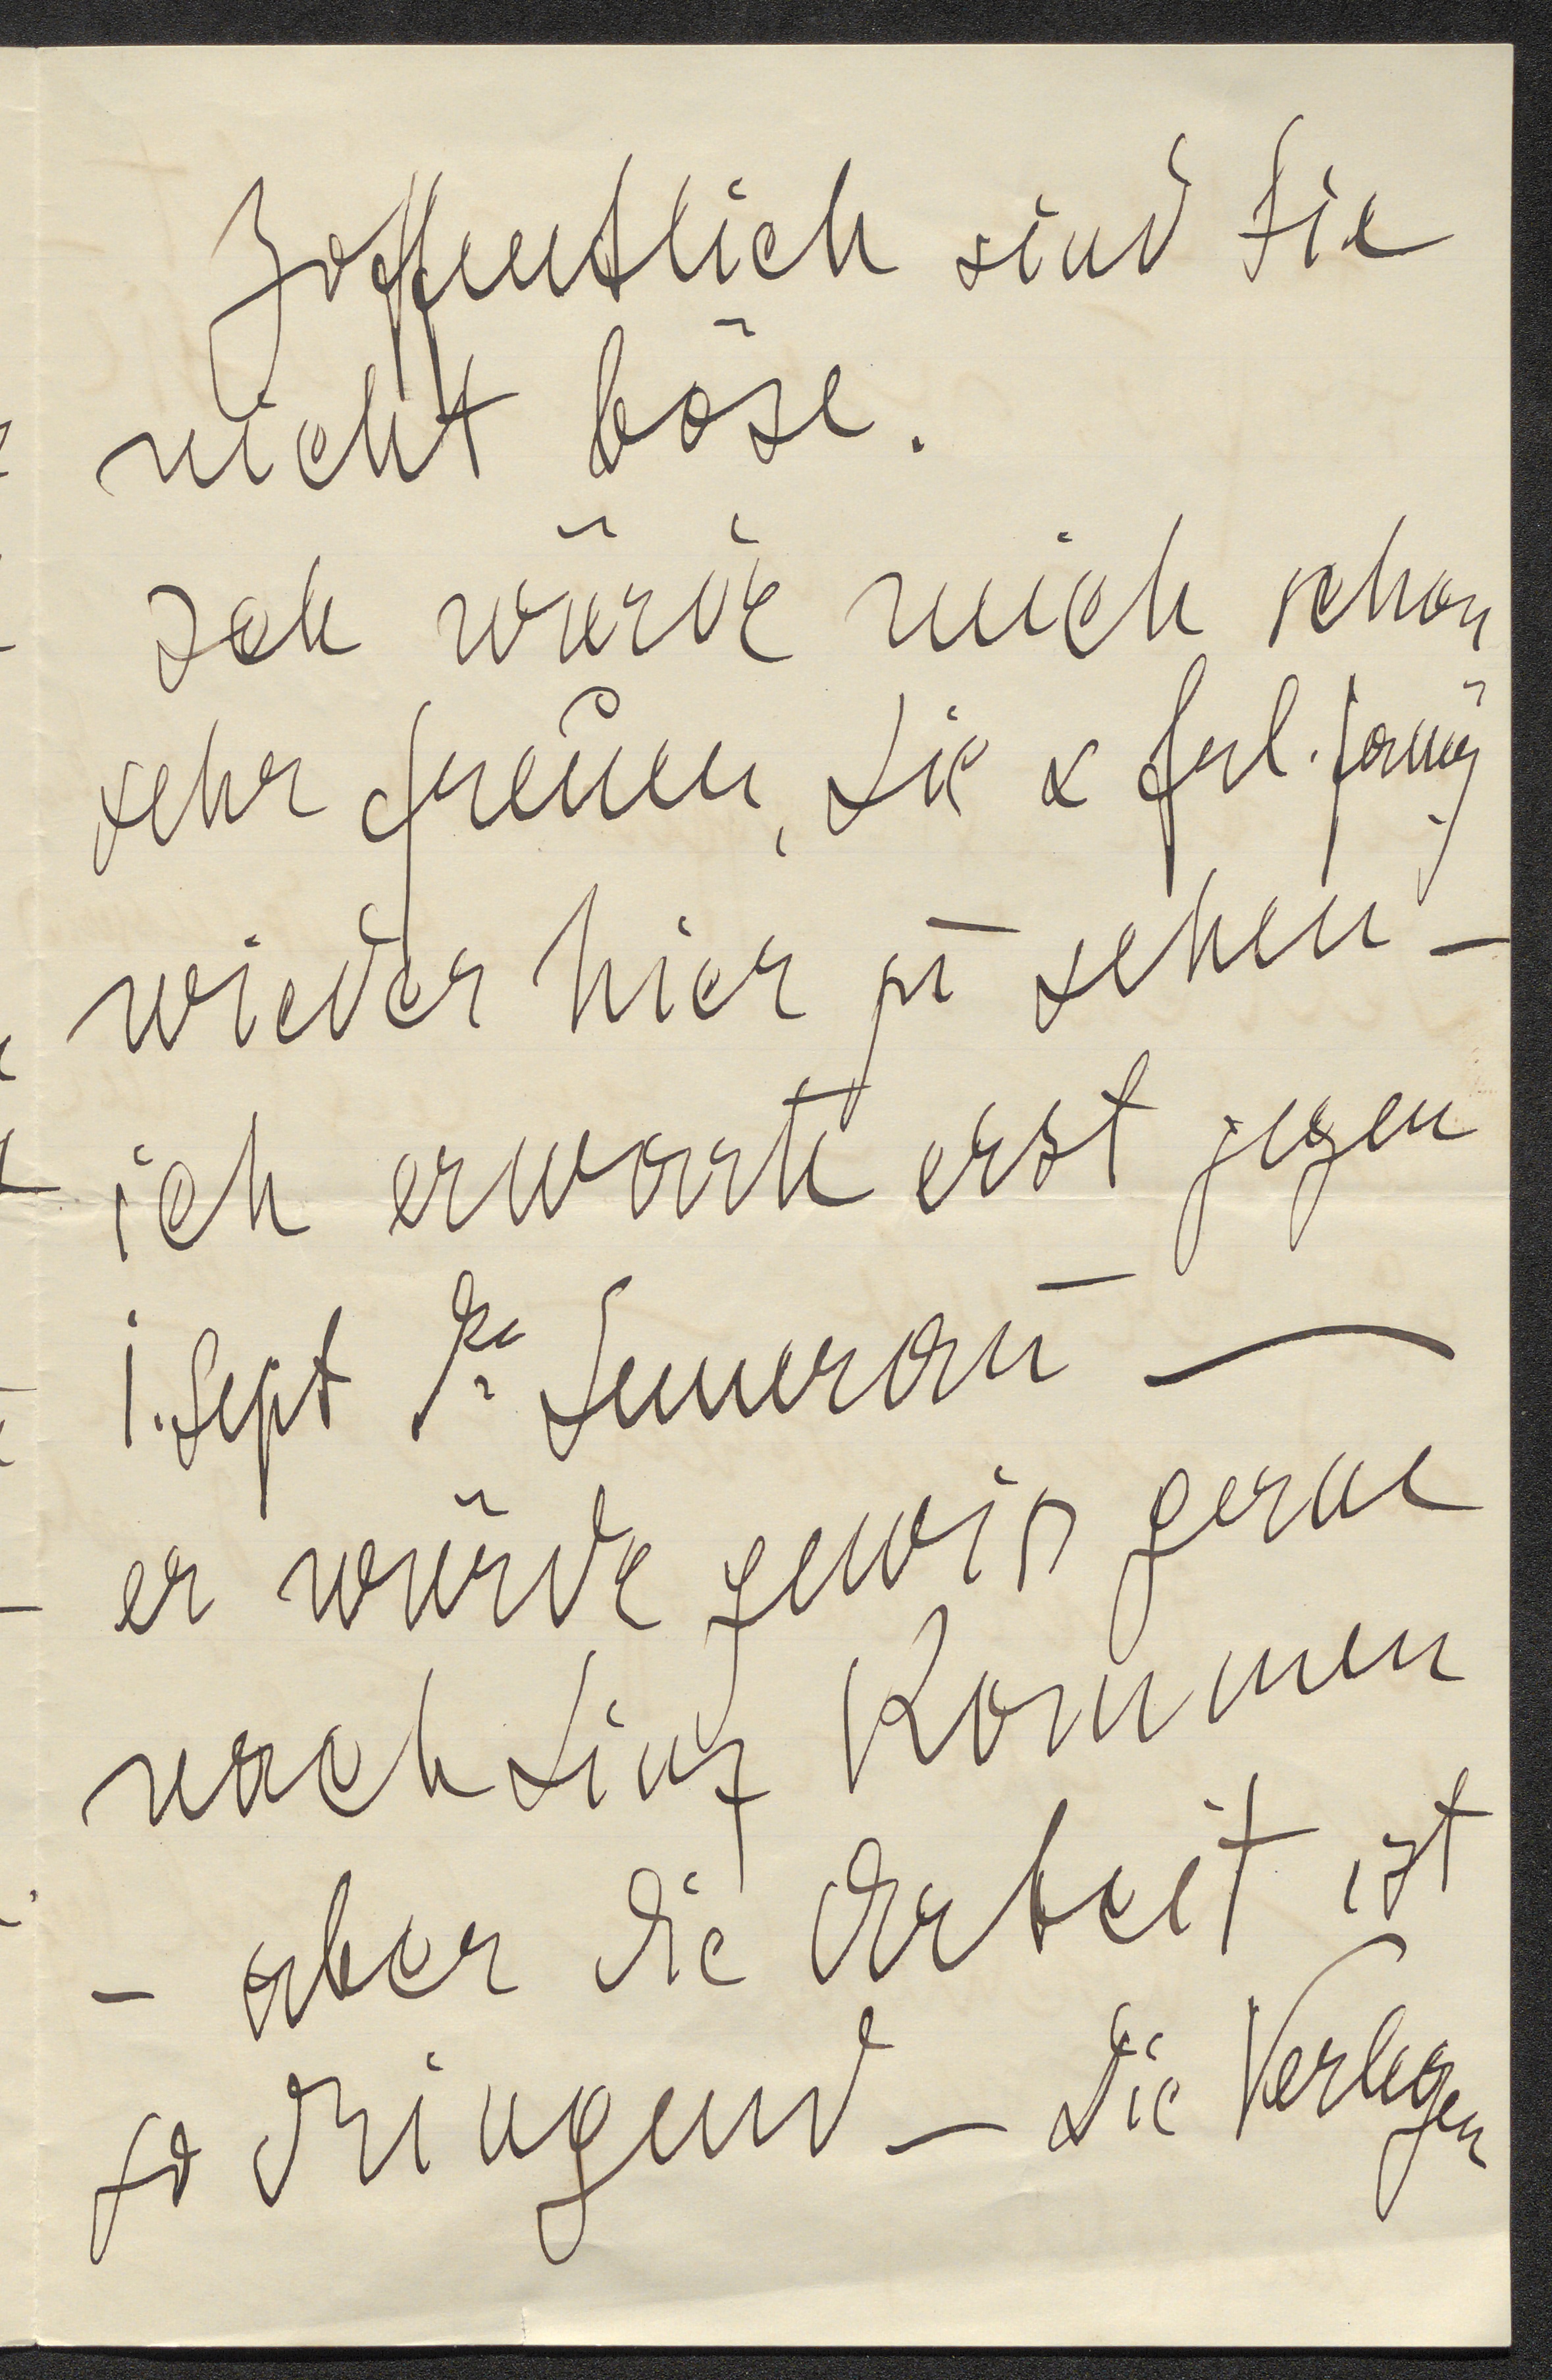 Hoffentlich sind Sie
nicht böse.
Ich würde mich schon
sehr freuen, Sie & Frl. Fanny
wieder hier zu sehen –
ich erwarte erst gegen
1. Sept Dr. Lemerau –
er würde gewiss gerne
nach Linz Kommen
– aber die Arbeit ist
so dringend – die Verlegen